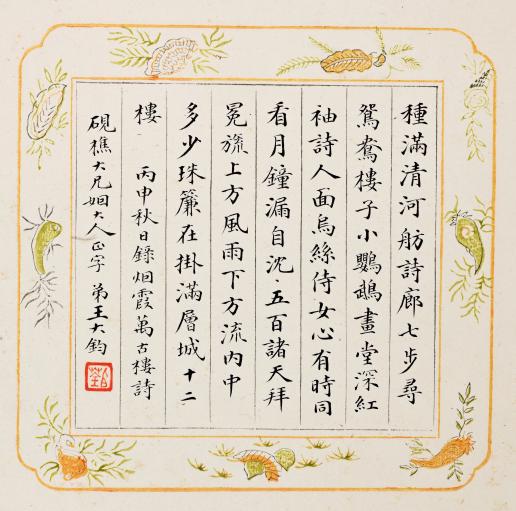 種滿清河舫詩廊七步尋
鴛鴦樓子小鸚鵡畫堂深紅
袖詩人面烏絲侍女心有時同
看月鐘漏自沈〻五百諸天拜
冕旒上方風雨下方流內中
多少珠簾在掛滿層城十二
樓 丙申秋日錄烟霞萬古樓詩
硯樵大兄姻大人正字 弟王大鈞